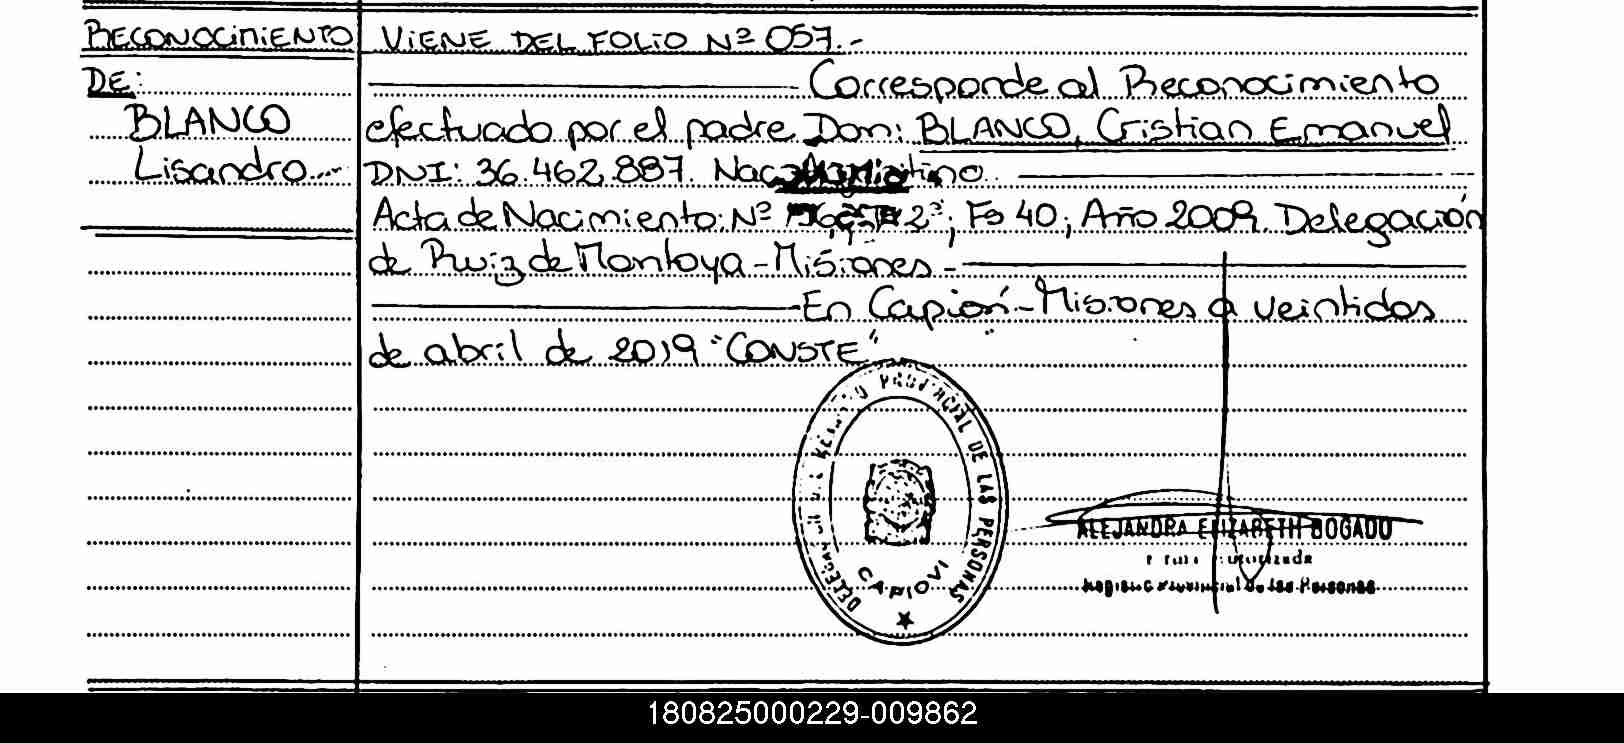 RECONOCIMIENTO
DE:
BLANCO
Lisandro.--
VIENE DEL FOLIO Nº 057.-
Corresponde al Reconocimiento
efectuado por el padre Don: BLANCO, Cristian Emanuel
DNI: 36.462.887.
Acta de Nacimiento: Nº 2ª; Fº 40; Año 2009. Delegación
de Ruiz de Montoya - Misiones -
En Capioví - Misiones a veintidos
de abril de 2019 "CONSTE"
PROVINCIAL DE LAS PERSONAS
CAPIOVI
ALEJANDRA ELIZABETH BOGADO
Registro Provincial de las Personas
180825000229-009862